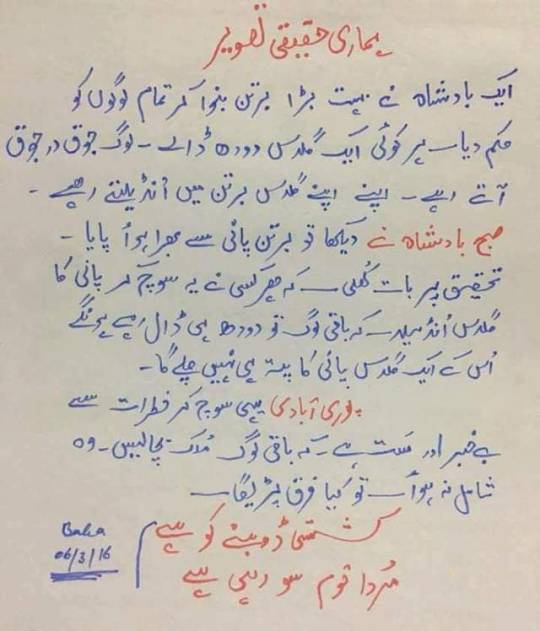 ہماری حقیقی تصویر
ایک بادشاہ نے بہت بڑا برتن بنوا کر تمام لوگوں کو
حکم دیا۔ ہر کوئی ایک گلاس دودھ ڈالے۔ لوگ جوق در جوق
آتے رہے۔ اپنے اپنے گلاس برتن میں اُنڈیلتے رہے۔
صبح بادشاہ نے دیکھا تو برتن پانی سے بھرا ہوا پایا۔
تحقیق پر بات کُھلی۔ کہ ہر کسی نے یہ سوچ کر پانی کا
گلاس اُنڈیلا۔ کہ باقی لوگ تو دودھ ہی ڈال رہے ہونگے
اُس کے ایک گلاس پانی کا پتہ ہی نہیں چلے گا۔
پوری آبادی یہی سوچ کر خطرات سے
بے خبر اور مست ہے۔ کہ باقی لوگ مُلک بچالیں۔ وہ
شامل نہ ہوا۔ تو کیا فرق پڑیگا۔
کشتی ڈوبنے کو ہے
مُردا قوم سو رہی ہے
Baha
06/3/16